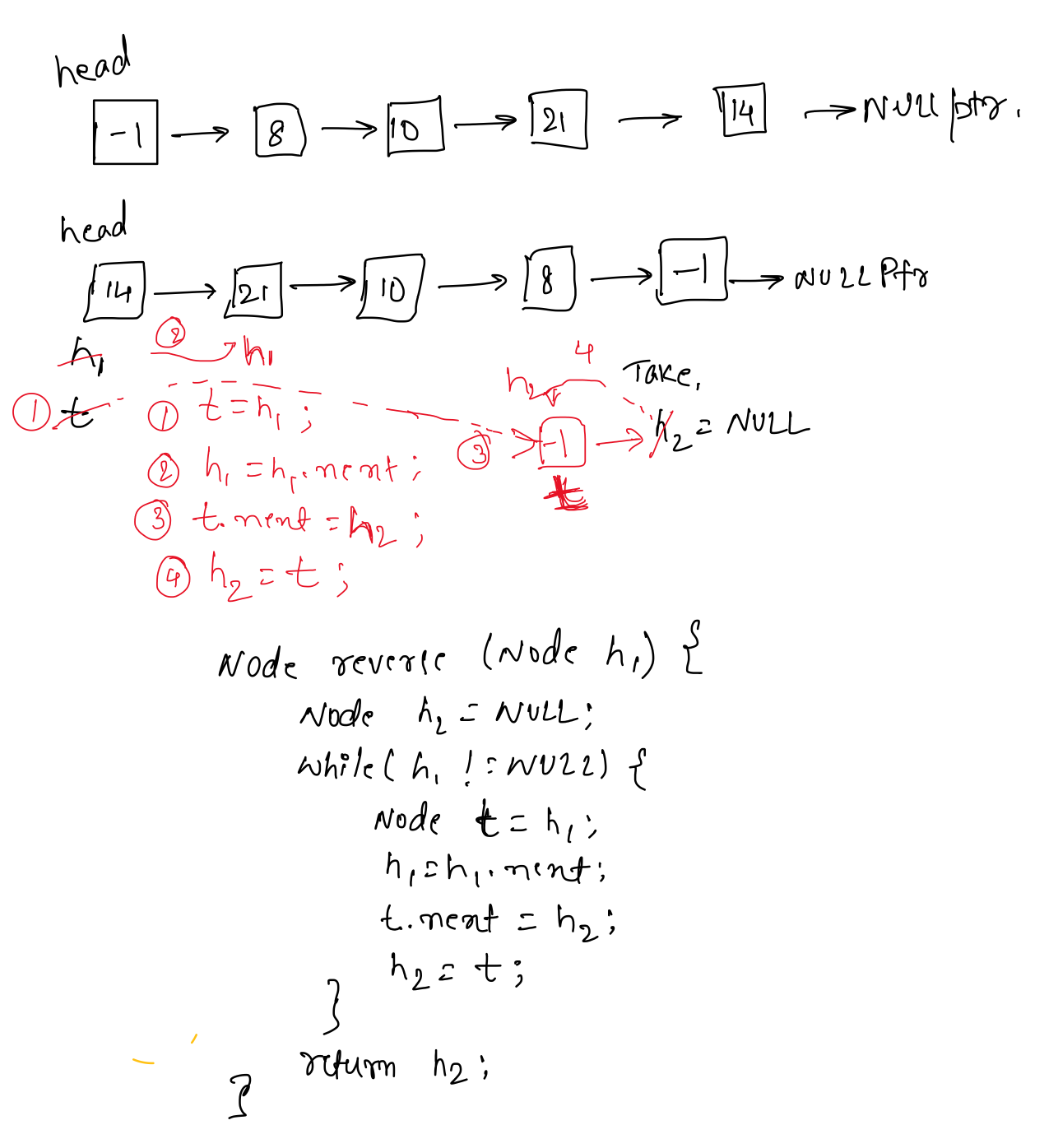 head
-1 → 8 → 10 → 21 → 14 → NULL ptr.
head
14 → 21 → 10 → 8 → -1 → NULL Ptr
h1 ② h1
① t
① t = h1;
② h1 = h1.next;
③ t.next = h2;
④ h2 = t;
4 Take,
h2
③ -1 → h2 = NULL
t
Node reverse (Node h1) {
Node h2 = NULL;
while( h1 != NULL) {
Node t = h1;
h1 = h1.next;
t.next = h2;
h2 = t;
}
return h2;
}